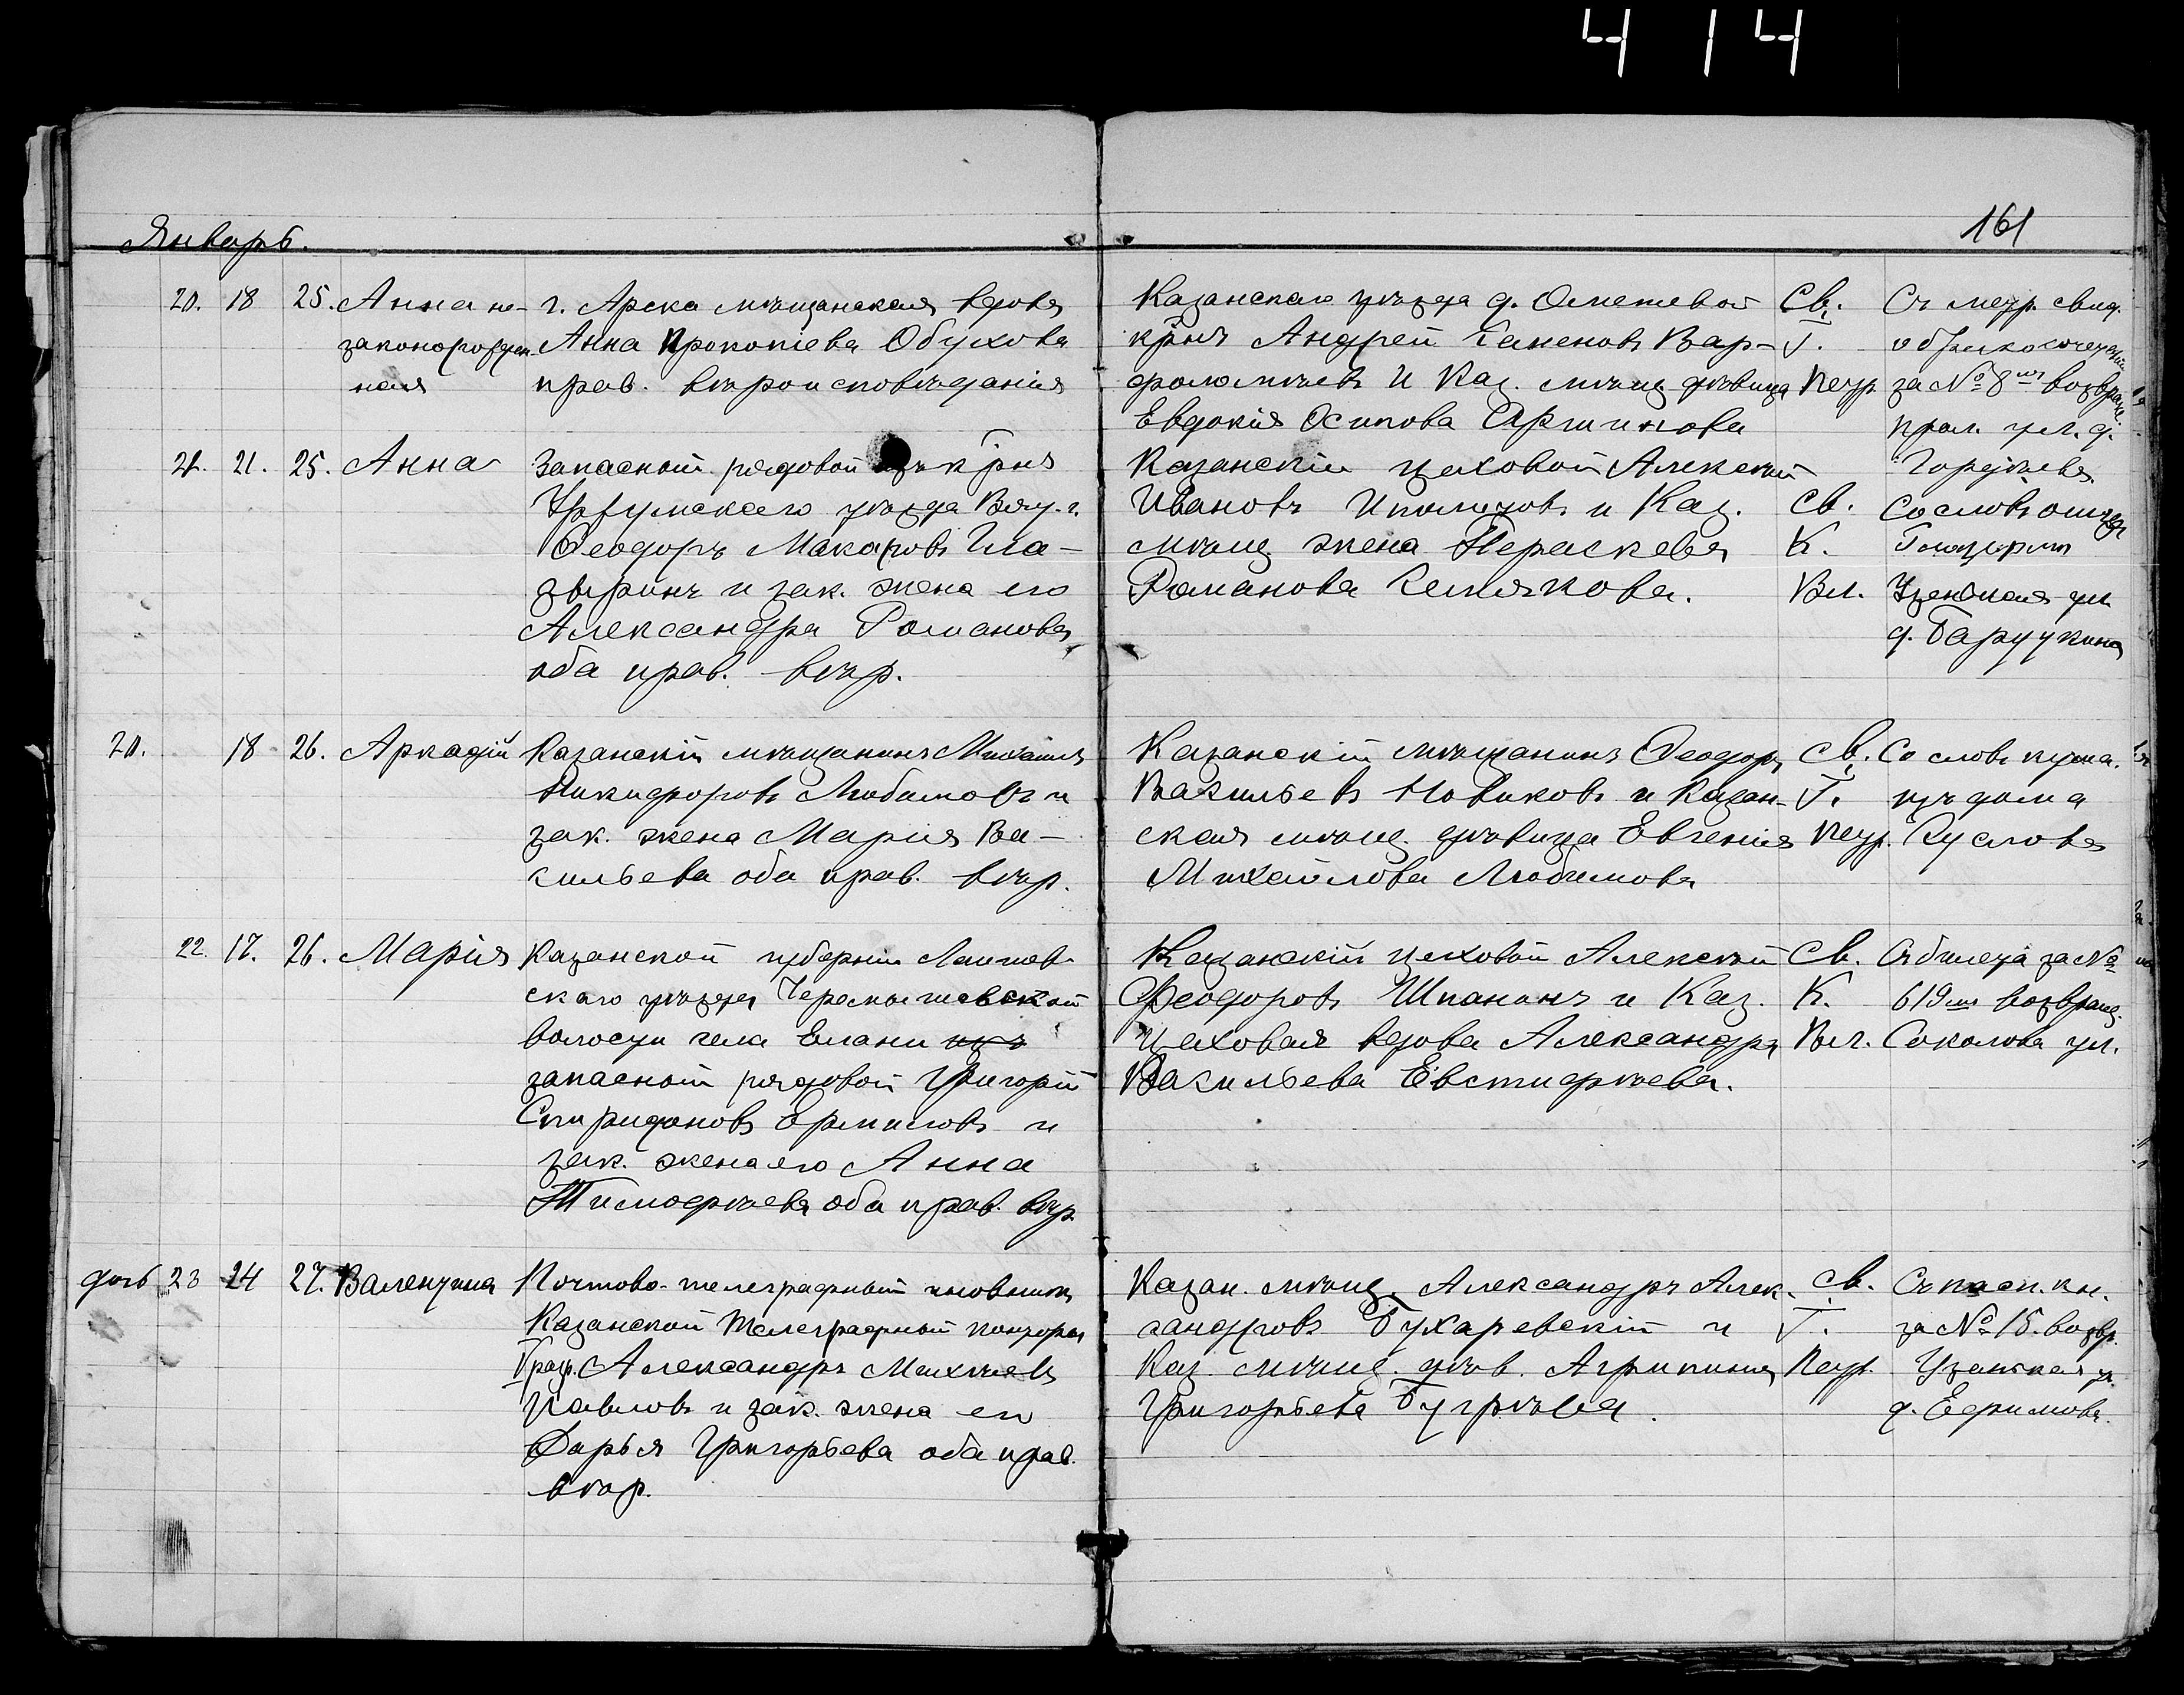 4 14
Январь.
161
20. 18 25. Анна не-
законорожден-
ная
г. Арска мѣщанская вдова
Анна Прокопіева Обухова
прав. вѣроисповѣданія
Казанскаго уѣзда д. Ометевой
кр̃нъ Андрей Семеновъ Вар-
фоломѣевъ и Каз. мѣщ. дѣвица
Евдокія Осипова Аршинова
Св.
Г.
Петр.
Съ метр. свид.
за № 8мъ возвращ.
ул. д.
21. 21. 25. Анна
Запасный рядовой изъ кр̃нъ
Уржумскаго уѣзда Вят. г.
Ѳеодоръ Макаровъ Гла-
зыринъ и зак. жена его
Александра Романова
оба прав. вѣр.
Казанскій цеховой Алексѣй
Ивановъ Иполитовъ и Каз.
мѣщ. жена Параскева
Романова Семякова.
Св.
К.
Вл.
Со словъ отца
Глазырина
Узенькая ул.
д. Баручкина
20. 18 26. Аркадій
Казанскій мѣщанинъ Михаилъ
Никифоровъ Любимовъ и
зак. жена Марія Ва-
сильева оба прав. вѣр.
Казанскій мѣщанинъ Ѳеодоръ
Васильевъ Новиковъ и Казан-
ская мѣщ. дѣвица Евгенія
Михайлова Любимова
Св.
Г.
Петр.
Со словъ кума.
изъ дома
Суслова
22. 17. 26. Марія
Казанской губерніи Лаишев-
скаго уѣзда Черемышевской
волости села Елани
запасный рядовой Григорій
Спиридоновъ Ермиловъ и
зак. жена его Анна
Тимофѣева оба прав. вѣр.
Казанскій цеховой Алексѣй
Ѳеодоровъ Шпанинъ и Каз.
цеховая вдова Александра
Васильева Евстифѣева.
Св.
К.
Вл.
Съ билета за №
619мъ возвращ.
Соколова ул.
дочь 23 24 27. Валентина
Почтово-телеграфный чиновникъ
Казанской Телеграфный конторы
разр. Александръ Михѣевъ
Павловъ и зак. жена его
Дарья Григорьева оба прав.
вѣр.
Казан. мѣщ. Александръ Алек-
сандровъ Бухаревскій и
Каз. мѣщ. дѣв. Агрипина
Григорьева Бугрѣева.
Св.
Г.
Петр.
Съ пасп. кн.
за № 15. возвр.
Узенькая ул.
д. Ефимова.